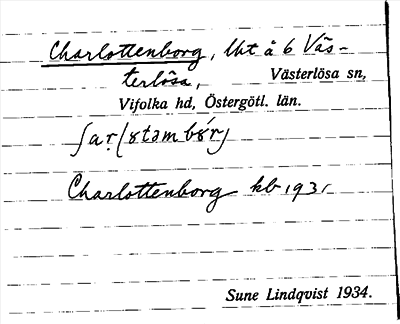 Charlottenborg, lht å 6 Väs-
terlösa, Västerlösa sn,
Vifolka hd, Östergötl. län.
Charlottenborg kb 1931
Sune Lindqvist 1934.